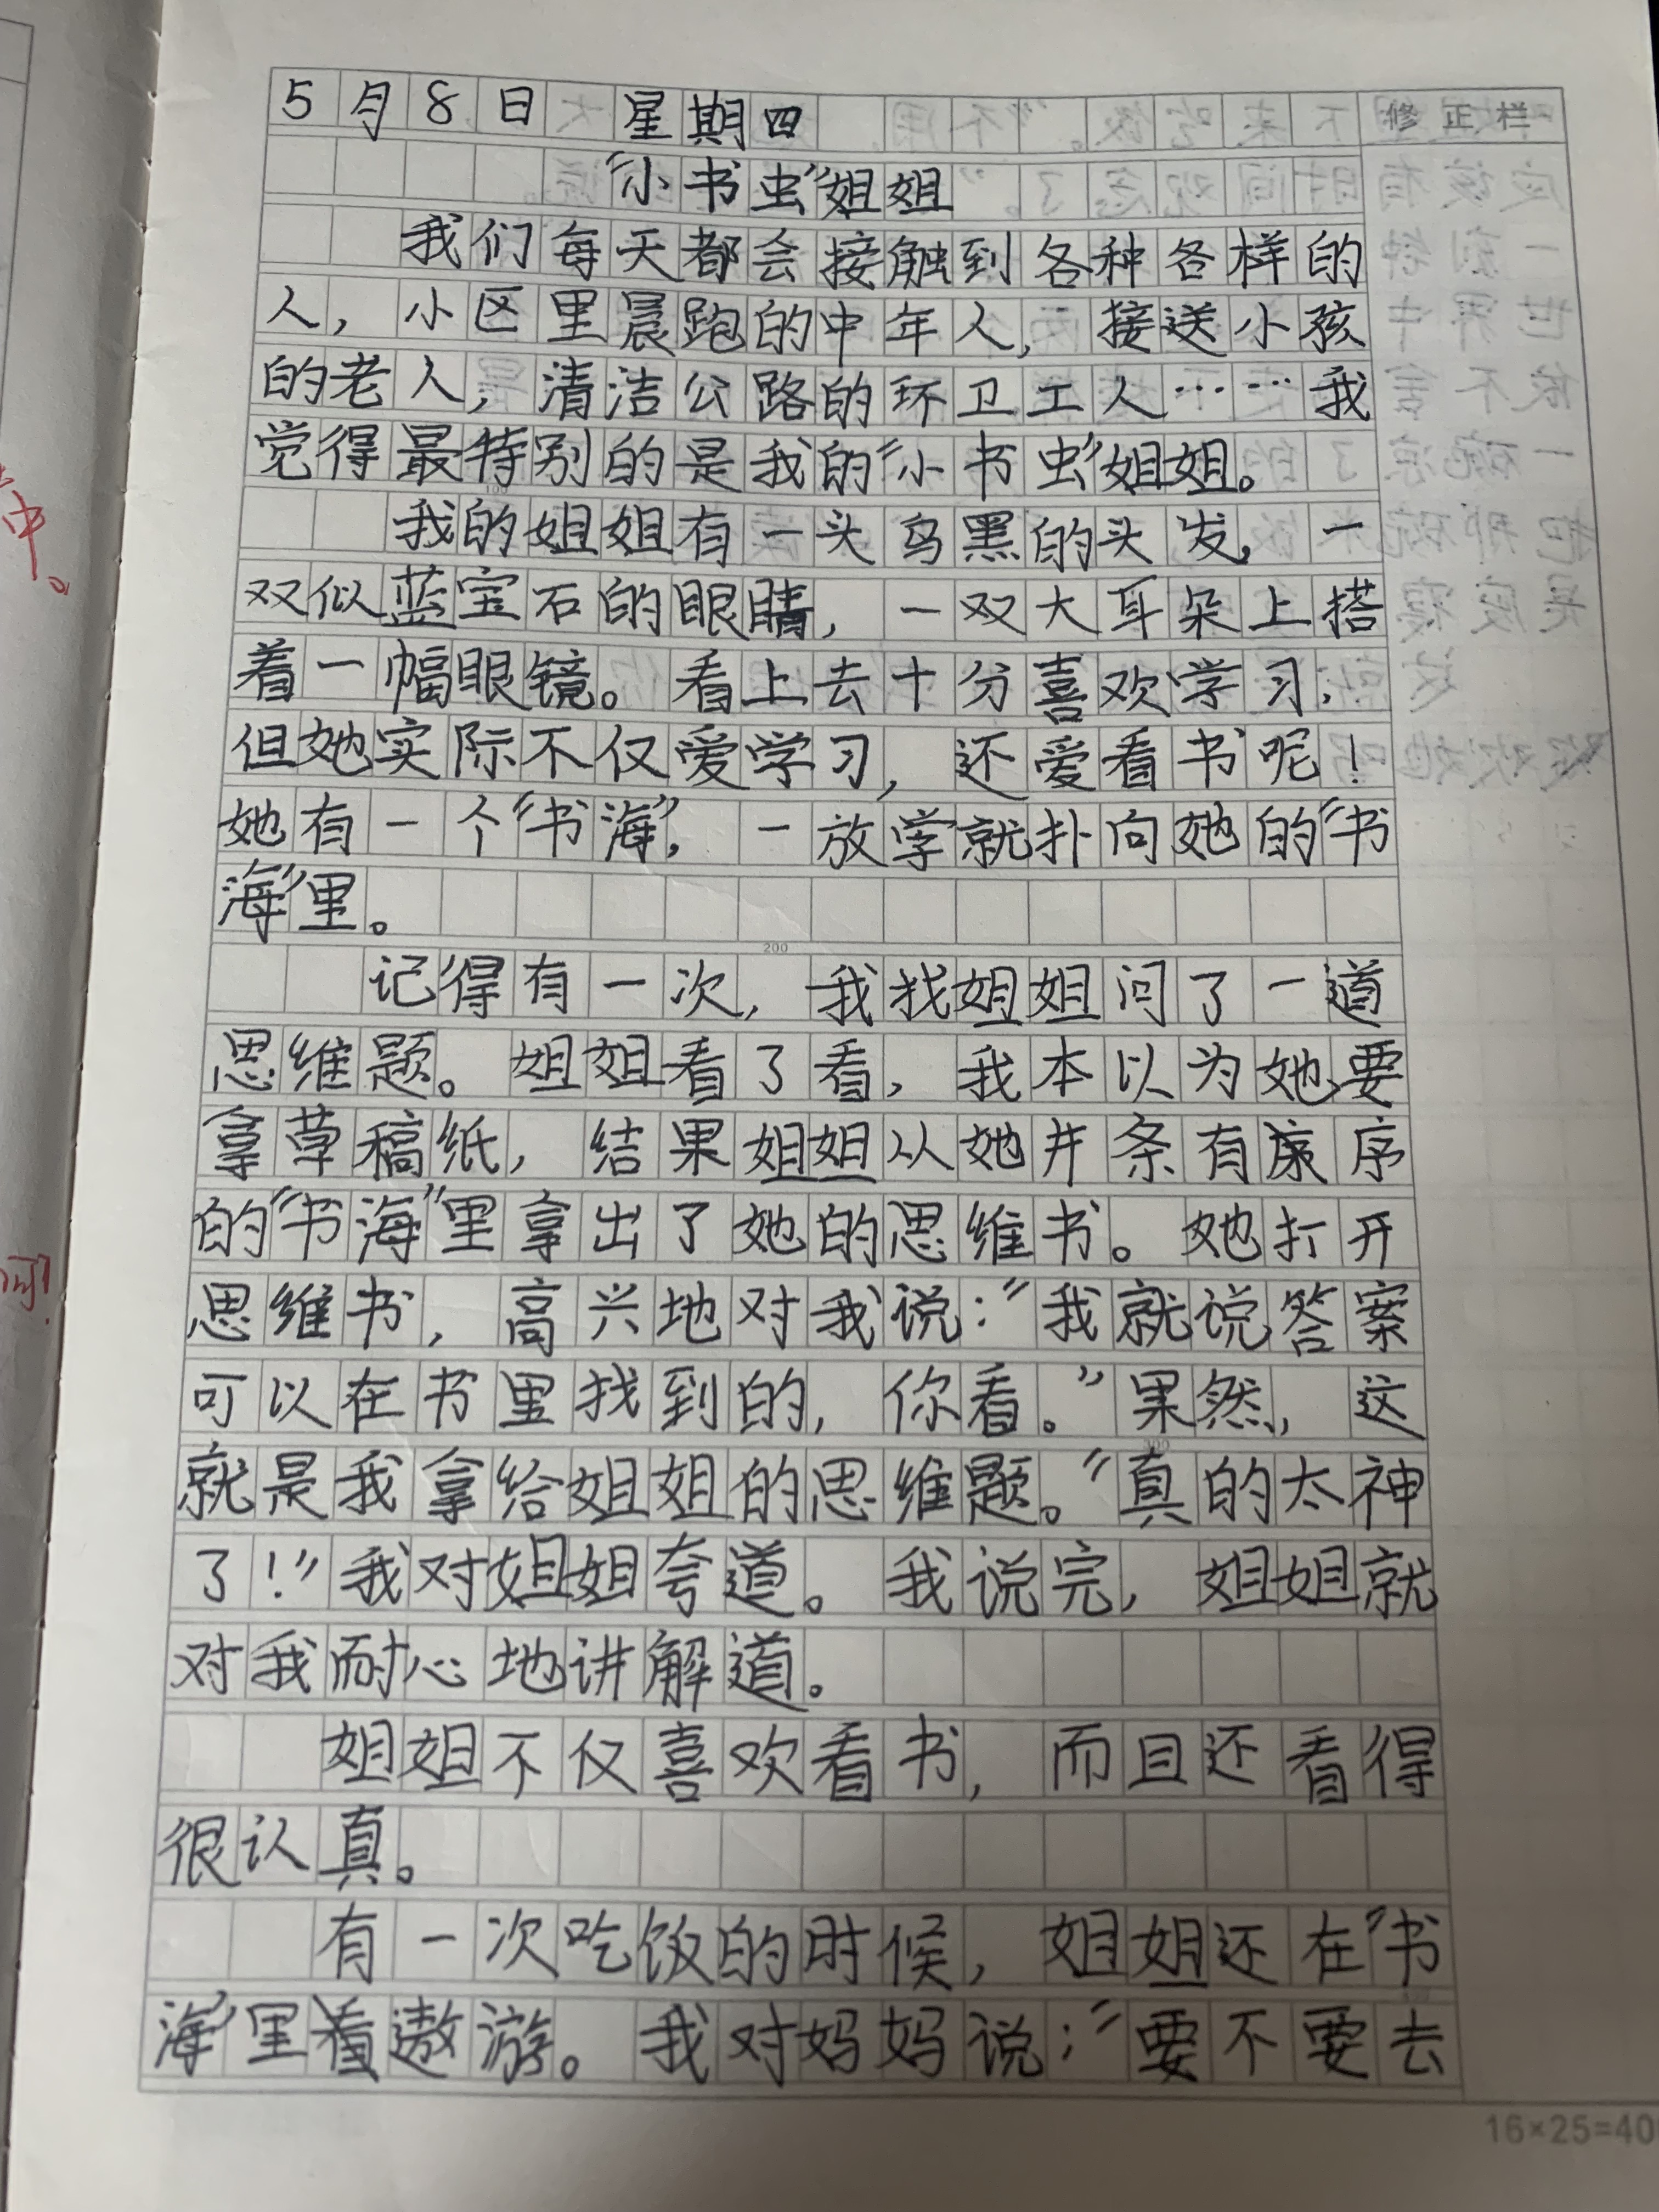 5月8日 星期四
修正栏
“小书虫”姐姐
我们每天都会接触到各种各样的
人，小区里晨跑的中年人，接送小孩
的老人，清洁公路的环卫工人……我
觉得最特别的是我的“小书虫”姐姐。
100
我的姐姐有一头乌黑的头发，一
双似蓝宝石的眼睛，一双大耳朵上搭
着一幅眼镜。看上去十分喜欢学习，
但她实际不仅爱学习，还爱看书呢！
她有一个“书海”，一放学就扑向她的“书
海”里。
200
记得有一次，我找姐姐问了一道
思维题。姐姐看了看，我本以为她要
拿草稿纸，结果姐姐从她井条有序
的“书海”里拿出了她的思维书。她打开
思维书，高兴地对我说：“我就说答案
可以在书里找到的，你看。”果然，这
300
就是我拿给姐姐的思维题。“真的太神
了！”我对姐姐夸道。我说完，姐姐就
对我耐心地讲解道。
姐姐不仅喜欢看书，而且还看得
很认真。
有一次吃饭的时候，姐姐还在“书
海”里着遨游。我对妈妈说：“要不要去
16×25=40
中。